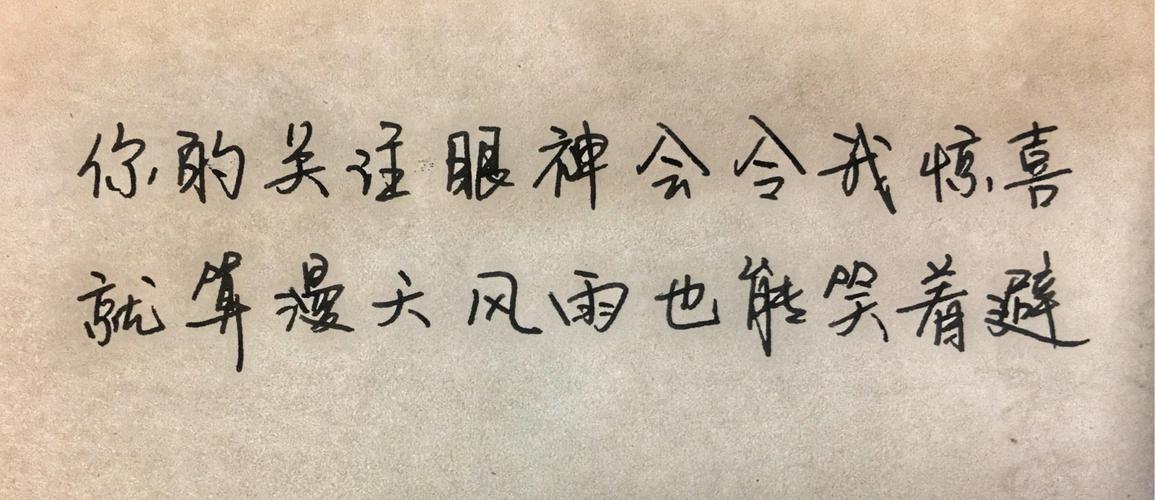 你的关注眼神会令我惊喜
就算漫天风雨也能笑着避